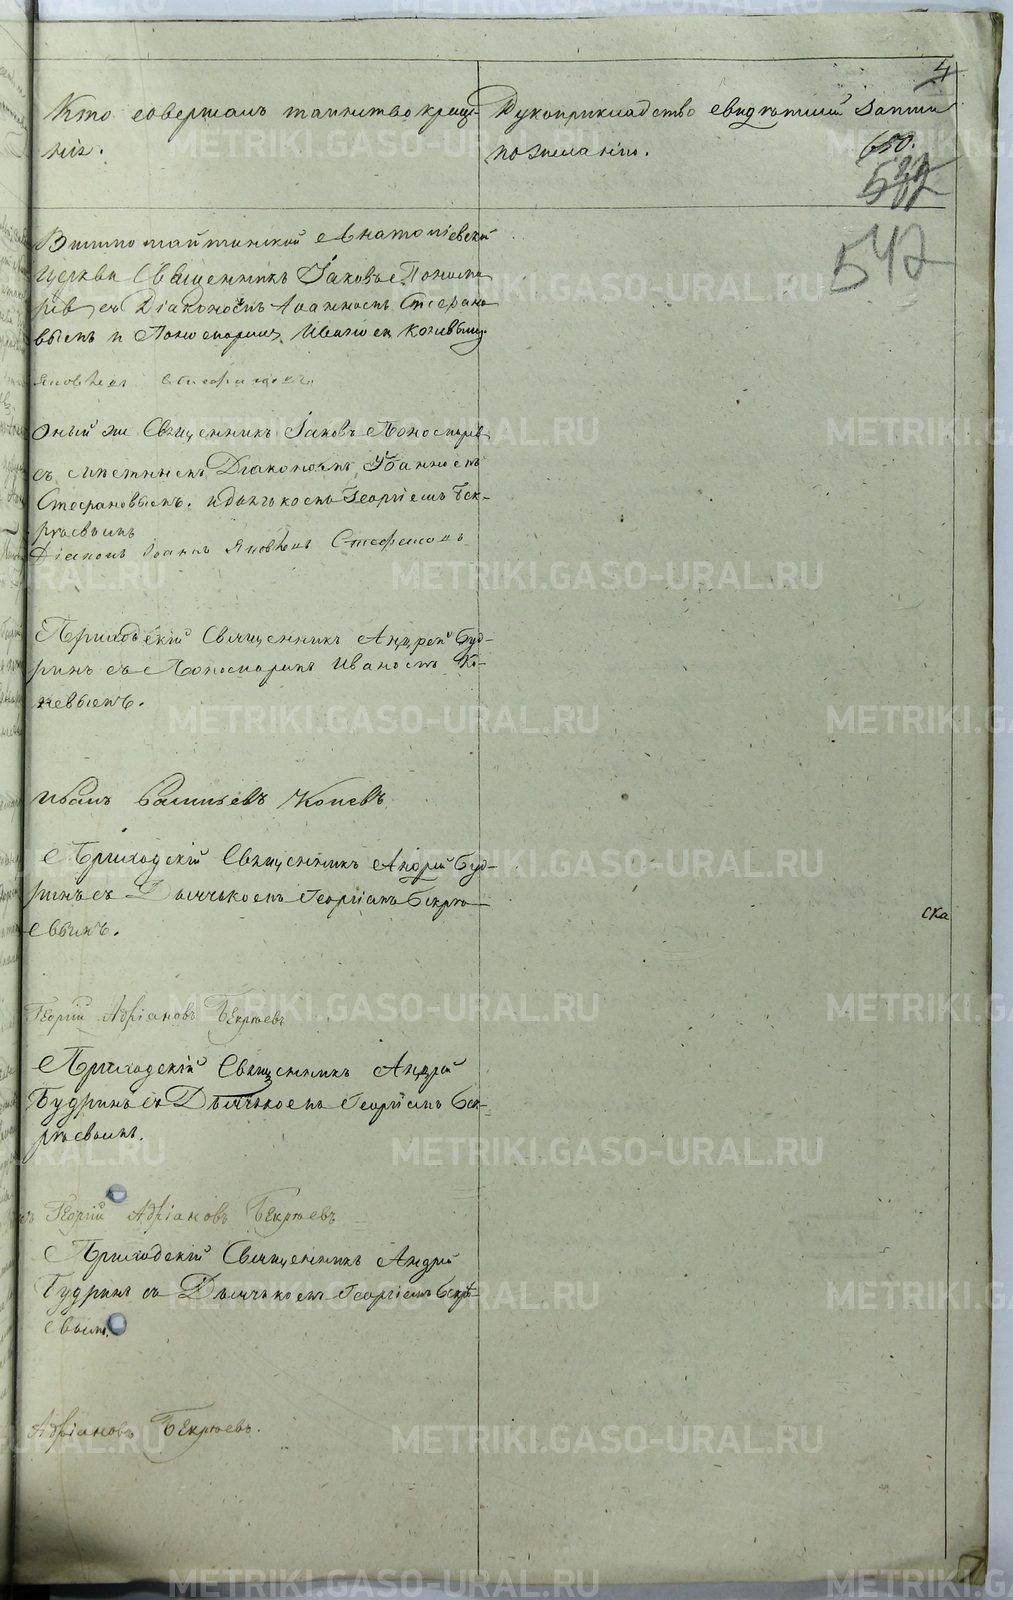 4
Кто совершалъ таинство креще-
нія.
Рукоприкладство свидѣтелей записи
по желанію.
650.
542
Священникъ Іаковъ Понома
ревъ съ Діакономъ Іоанномъ Стефано
вымъ и Пономаремъ Иваномъ Копевымъ.
Яковлевъ Стефановъ
Оный же Священникъ Іаковъ Пономаревъ
съ мѣстнымъ Діакономъ Іоанномъ
Стефановымъ. и дьячкомъ Георгіемъ Бек-
рѣевымъ
Діаконъ Іоаннъ Яковлевъ Стефановъ
Приходскій Священникъ Андрей Буд-
ринъ съ Пономаремъ Иваномъ Ко-
певымъ.
Иванъ Васильевъ Копевъ
Приходскій Священникъ Андрей Буд-
ринъ съ Дьячькомъ Георгіемъ Бекрѣ-
евымъ.
Георгій Адріановъ Бекрѣевъ
Приходскій Священникъ Андрей
Будринъ съ Дьячькомъ Георгіемъ Бек-
рѣевымъ.
Георгій Адріановъ Бекрѣевъ
Приходскій Священникъ Андрей
Будринъ съ Дьячькомъ Георгіемъ Бекрѣ-
евымъ.
Адріановъ Бекрѣевъ.
ска
METRIKI.GASO-URAL.RU